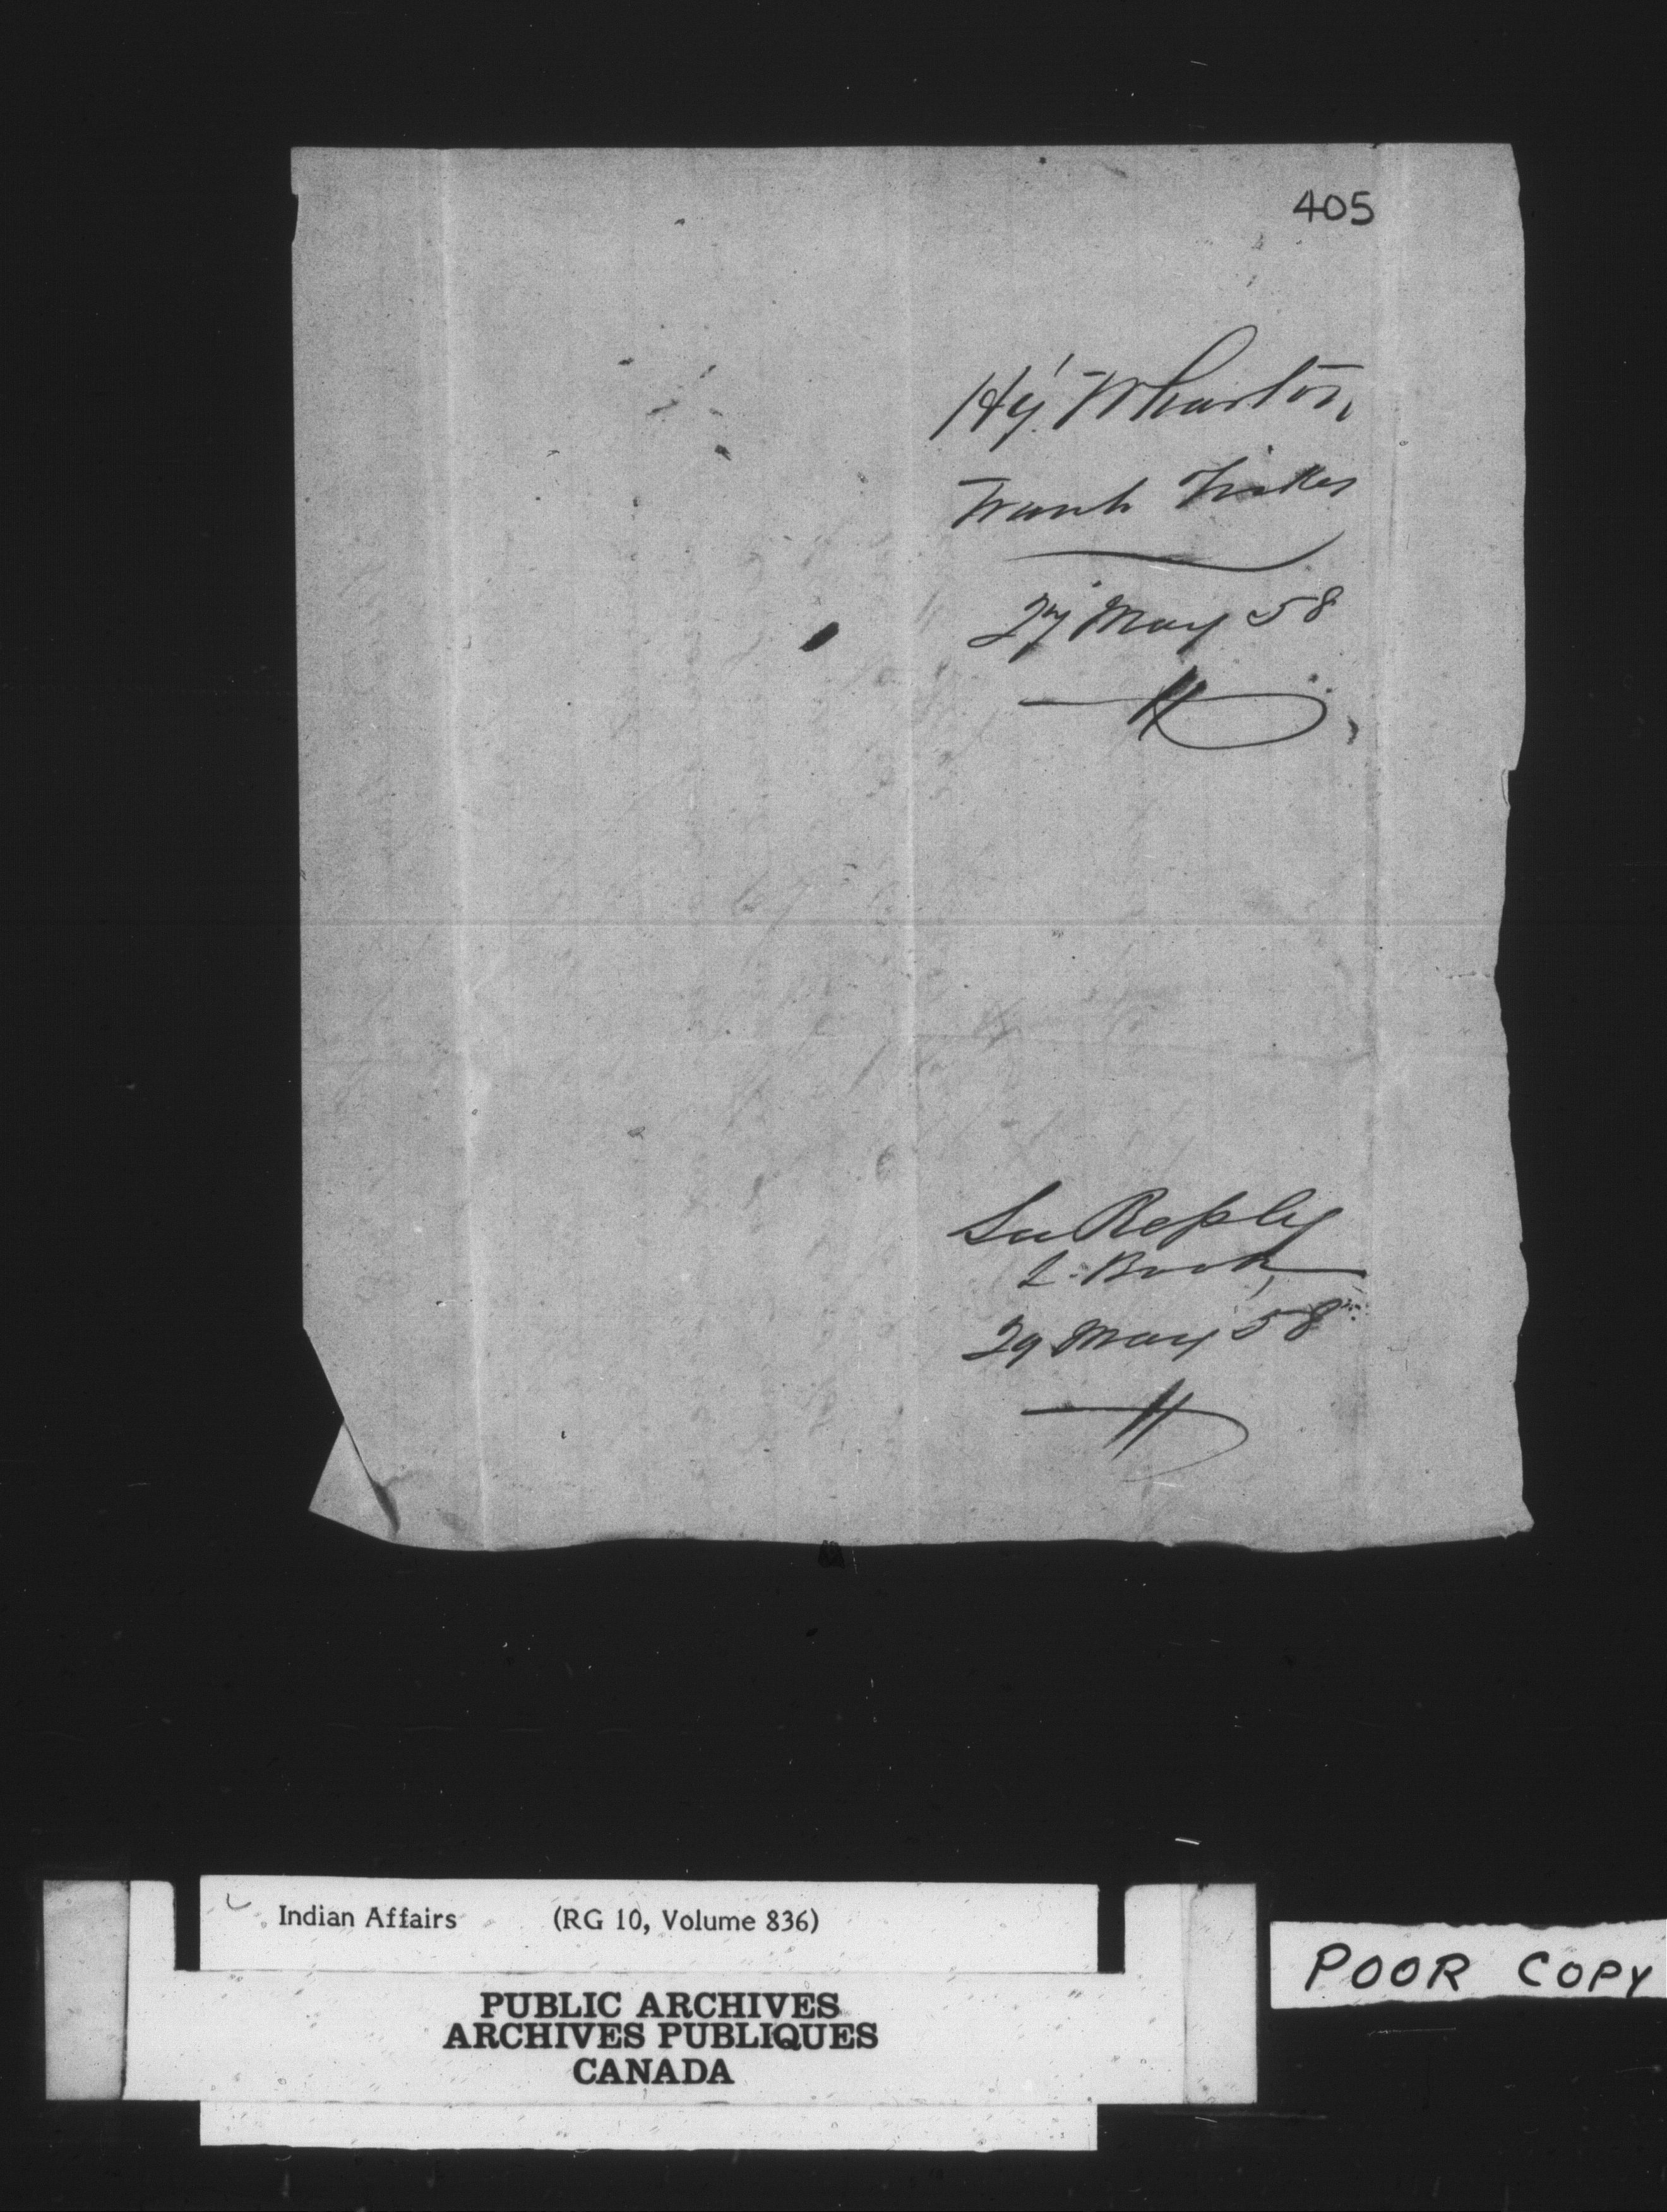 405
Hy. Wharton,
27 May 58
H
See Reply
L. Book
29 May 58
H
Indian Affairs (RG 10, Volume 836)
PUBLIC ARCHIVES
ARCHIVES PUBLIQUES
CANADA
POOR COPY